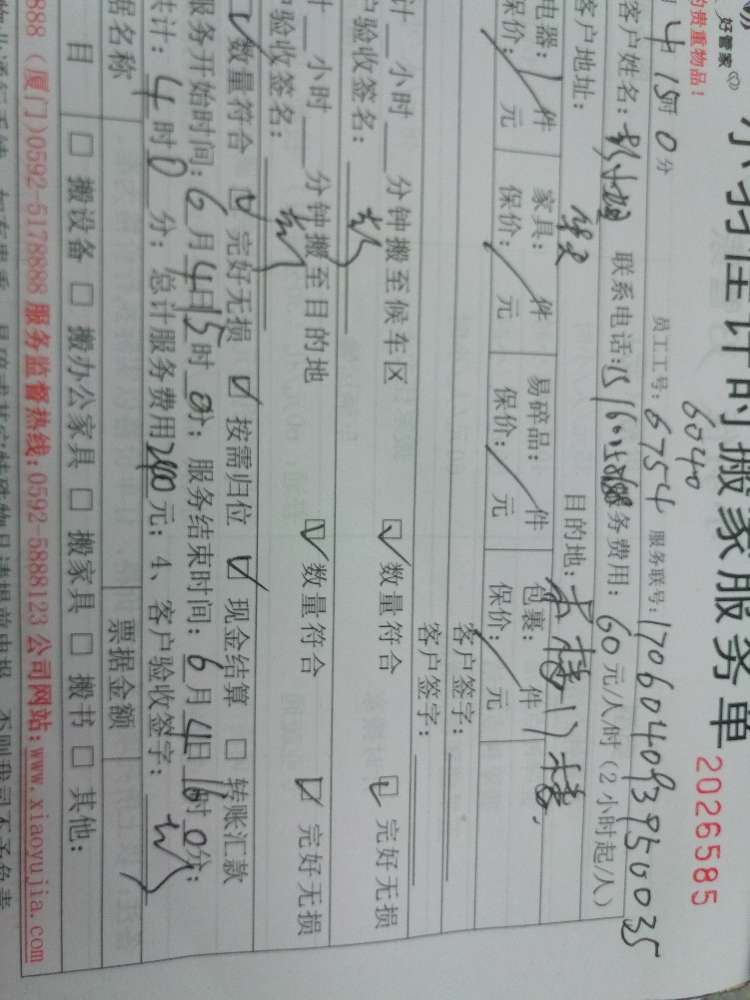 好管家
小羽佳计时搬家服务单
2026585
的贵重物品！
6040
4 15时 0 分 员工工号: 6754 服务联号: 170604093950035
客户姓名: 彭小姐 联系电话: 务费用: 60 元/人/时（2小时起/人）
客户地址: 目的地: 本楼17楼,
电器: / 件 家具: / 件 易碎品: / 件 包裹: / 件
保价: / 元 保价: / 元 保价: / 元 保价: / 元
客户签字:
客户签字:
计__小时__分钟搬至候车区 ☑ 数量符合 ☑ 完好无损
户验收签名:
计__小时__分钟搬至目的地 ☑ 数量符合 ☑ 完好无损
户验收签名:
☑ 数量符合 ☑ 完好无损 ☑ 按需归位 ☑ 现金结算 □ 转账汇款
服务开始时间: 6 月 4 日 15 时 0 分; 服务结束时间: 6 月 4 日 16 时 0 分;
共计: 4 时 0 分; 总计服务费用 240 元; 4、客户验收签字:
据名称 票据金额
目 □ 搬设备 □ 搬办公家具 □ 搬家具 □ 搬书 □ 其他:
888 (厦门)0592-5178888 服务监督热线:0592-5888123 公司网站:www.xiaoyujia.com